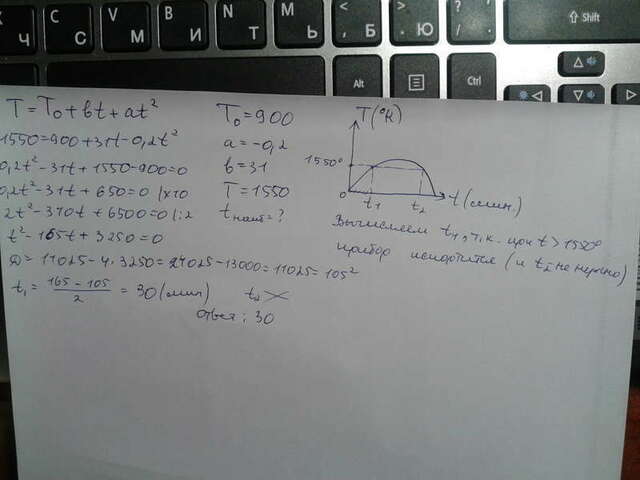 Ч С М И Т Ь < Б > Ю ? ⇧ Shift
C V B N M , . /
Alt Ctrl
T=T₀+bt+at²
1550=900+31t-0,2t²
0,2t²-31t+1550-900=0
0,2t²-31t+650=0 |x10
2t²-310t+6500=0 |:2
t²-155t+3250=0
D=24025-4·3250=24025-13000=11025=105²
t₁=(165-105)/2=30(мин) t₂
Ответ: 30
T₀=900
a=-0,2
b=31
T=1550
tнаиб=?
T(°K)
1550°
0 t₁ t₂ t(мин.)
Вычисляем t₁, т.к. при t>1550°
прибор испортится (и t₂ не нужно)